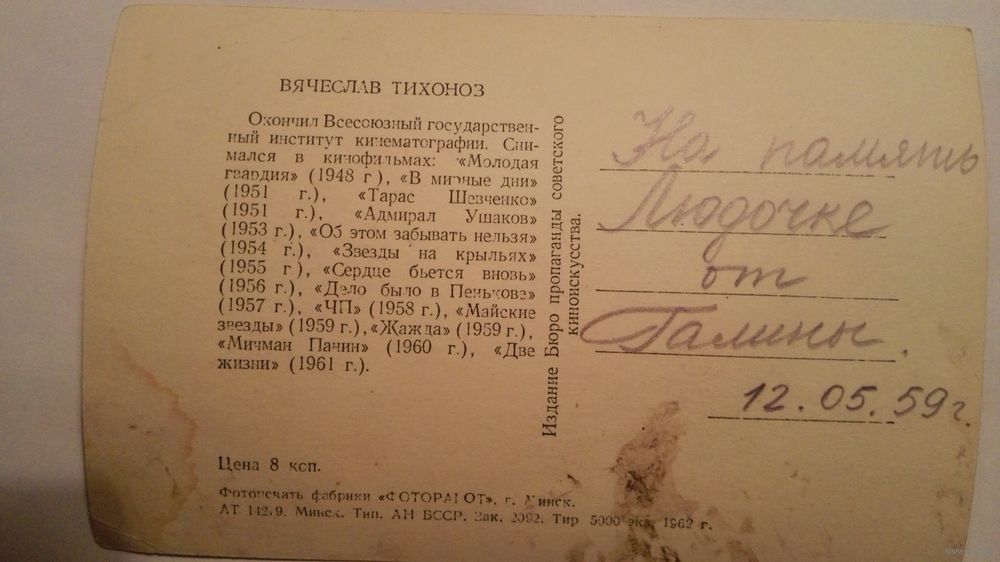 ВЯЧЕСЛАВ ТИХОНОЗ
Окончил Всесоюзный государствен-
ный институт кинематографии. Сни-
мался в кинофильмах: «Молодая
гвардия» (1948 г), «В мирные дни»
(1951 г.), «Тарас Шевченко»
(1951 г.), «Адмирал Ушаков»
(1953 г.), «Об этом забывать нельзя»
(1954 г.), «Звезды на крыльях»
(1955 г), «Сердце бьется вновь»
(1956 г.), «Дело было в Пенькове»
(1957 г.), «ЧП» (1958 г.), «Майские
звезды» (1959 г.), «Жажда» (1959 г.),
«Мичман Панин» (1960 г.), «Две
жизни» (1961 г.).
Цена 8 коп.
Фотопечать фабрики «ФОТОРАБОТ». г. Минск.
АТ Минск. Тип. АН БССР. Зак. 2092. Тир 5000 экз. 1962 г.
Издание Бюро пропаганды советского
киноискусства.
На память
Людочке
от
Галины.
12.05.59г.